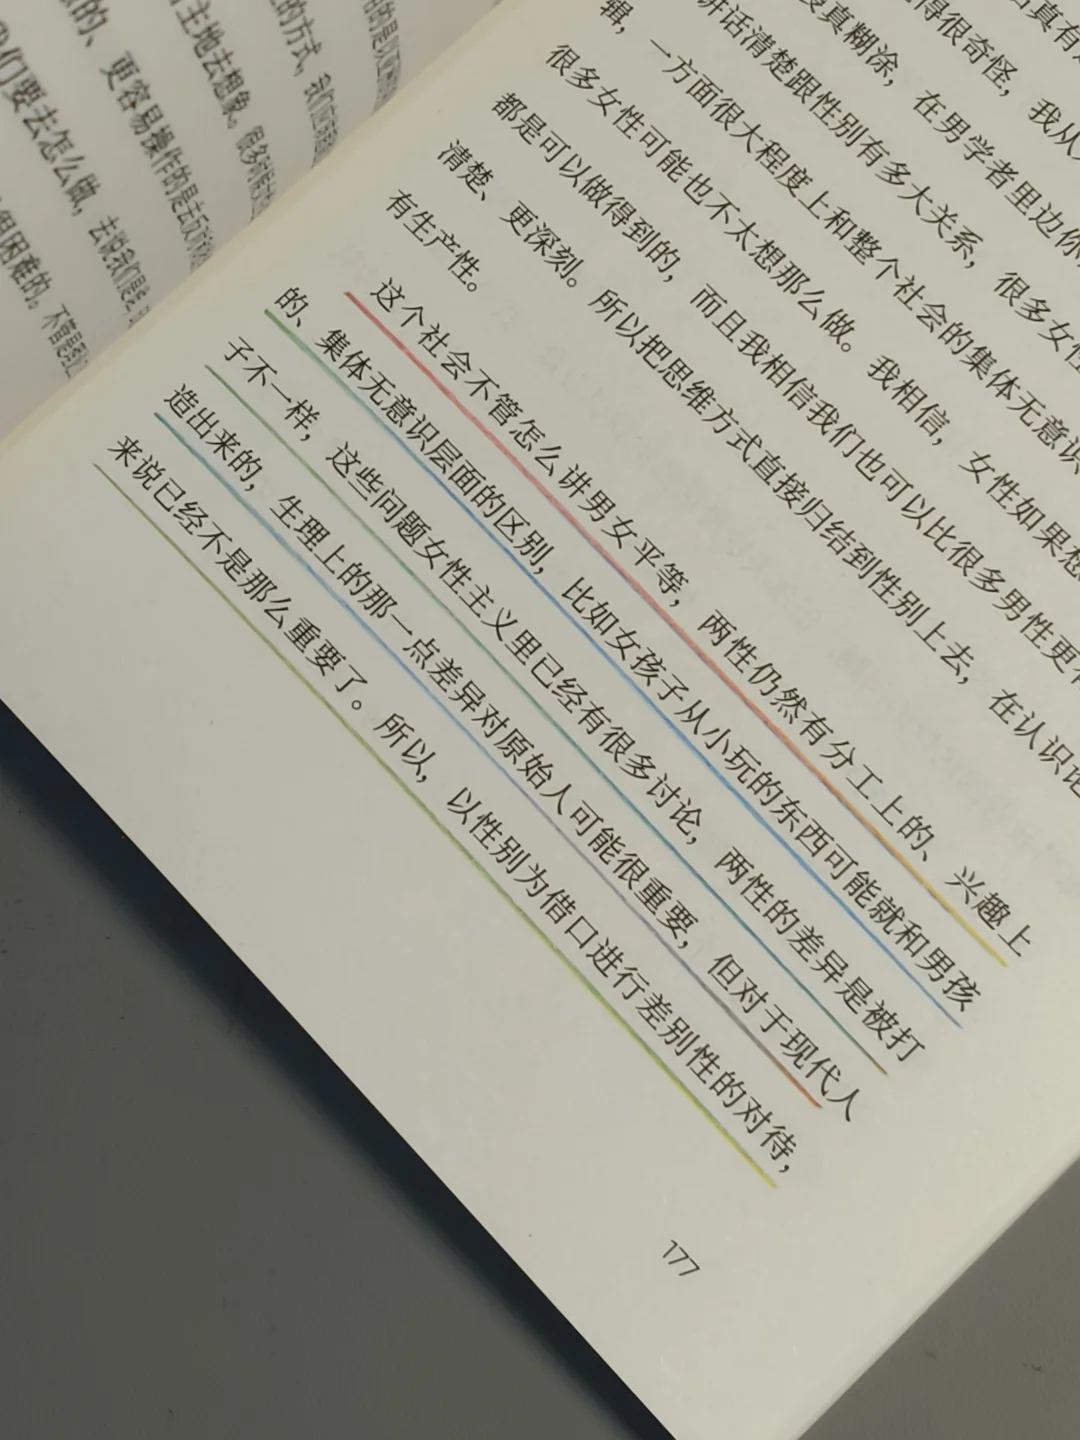 的方式，我们
主地去想象。很多
的、更容易操作的是去反
我们要去怎么做，去说我们是
但困难的。不管是
得很奇怪，我从
真糊涂，在男学者里边你
讲话清楚跟性别有多大关系，很多女性
辑，一方面很大程度上和整个社会的集体无意识
很多女性可能也不太想那么做。我相信，女性如果想
都是可以做得到的，而且我相信我们也可以比很多男性更
清楚、更深刻。所以把思维方式直接归结到性别上去，在认识论
有生产性。
这个社会不管怎么讲男女平等，两性仍然有分工上的、兴趣上
的、集体无意识层面的区别，比如女孩子从小玩的东西可能就和男孩
子不一样，这些问题女性主义里已经有很多讨论，两性的差异是被打
造出来的，生理上的那一点差异对原始人可能很重要，但对于现代人
来说已经不是那么重要了。所以，以性别为借口进行差别性的对待，
177